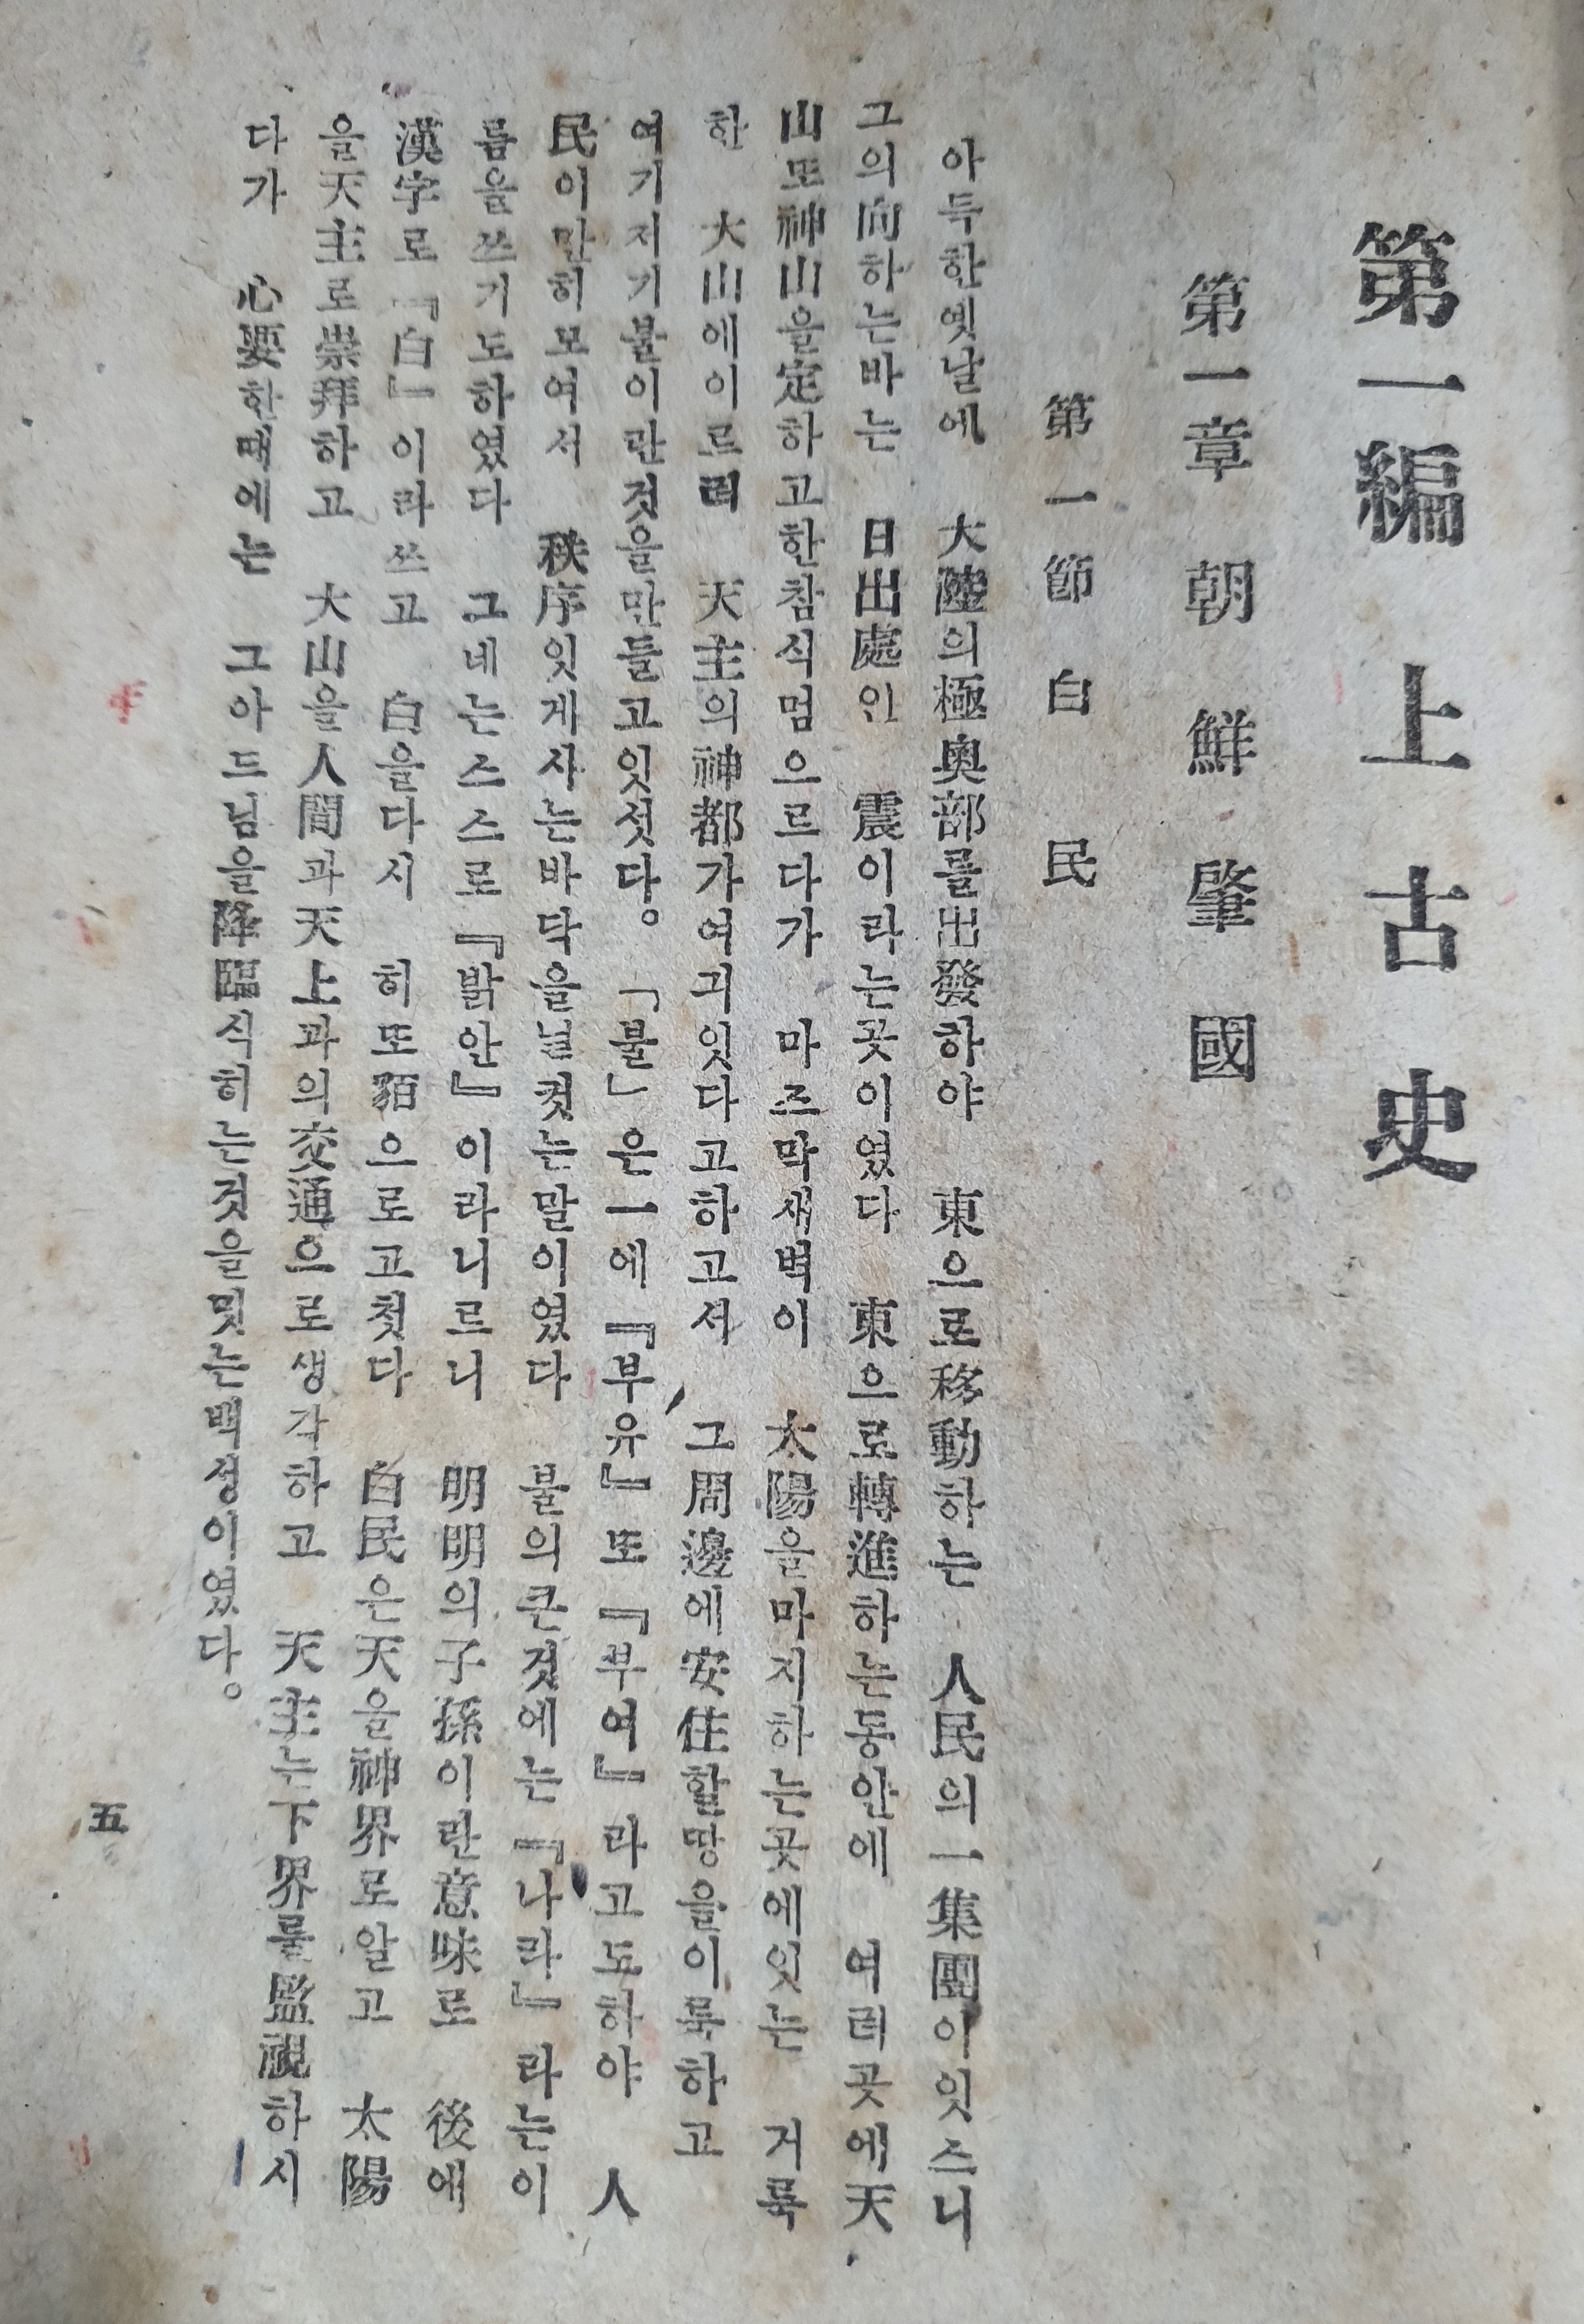 第一編 上古史
第一章 朝鮮肇國
第一節 白民
아득한옛날에 大陸의極奧部를出發하야 東으로移動하는 人民의一集團이잇스니
그의向하는바는 日出處인 震이라는곳이였다 東으로轉進하는동안에 여러곳에天
山또神山을定하고한참식멈으르다가 마즈막새벽이 太陽을마지하는곳에잇는 거룩
한 大山에이르러 天主의神都가여긔잇다고하고서 그周邊에安住할땅을이룩하고
여기저기불이란것을만들고잇섯다。「불」은一에『부유』또『부여』라고도하야 人
民이만히모여서 秩序잇게사는바닥을닐컷는말이였다 불의큰것에는『나라』라는이
름을쓰기도하였다 그네는스스로『밝안』이라니르니 明明의子孫이란意味로 後에
漢字로『白』이라쓰고 白을다시 히또貊으로고첫다 白民은天을神界로알고 太陽
을天主로崇拜하고 大山을人間과天上과의交通으로생각하고 天主는下界를監視하시
다가 心要한때에는 그아드님을降臨식히는것을밋는백성이였다。
五